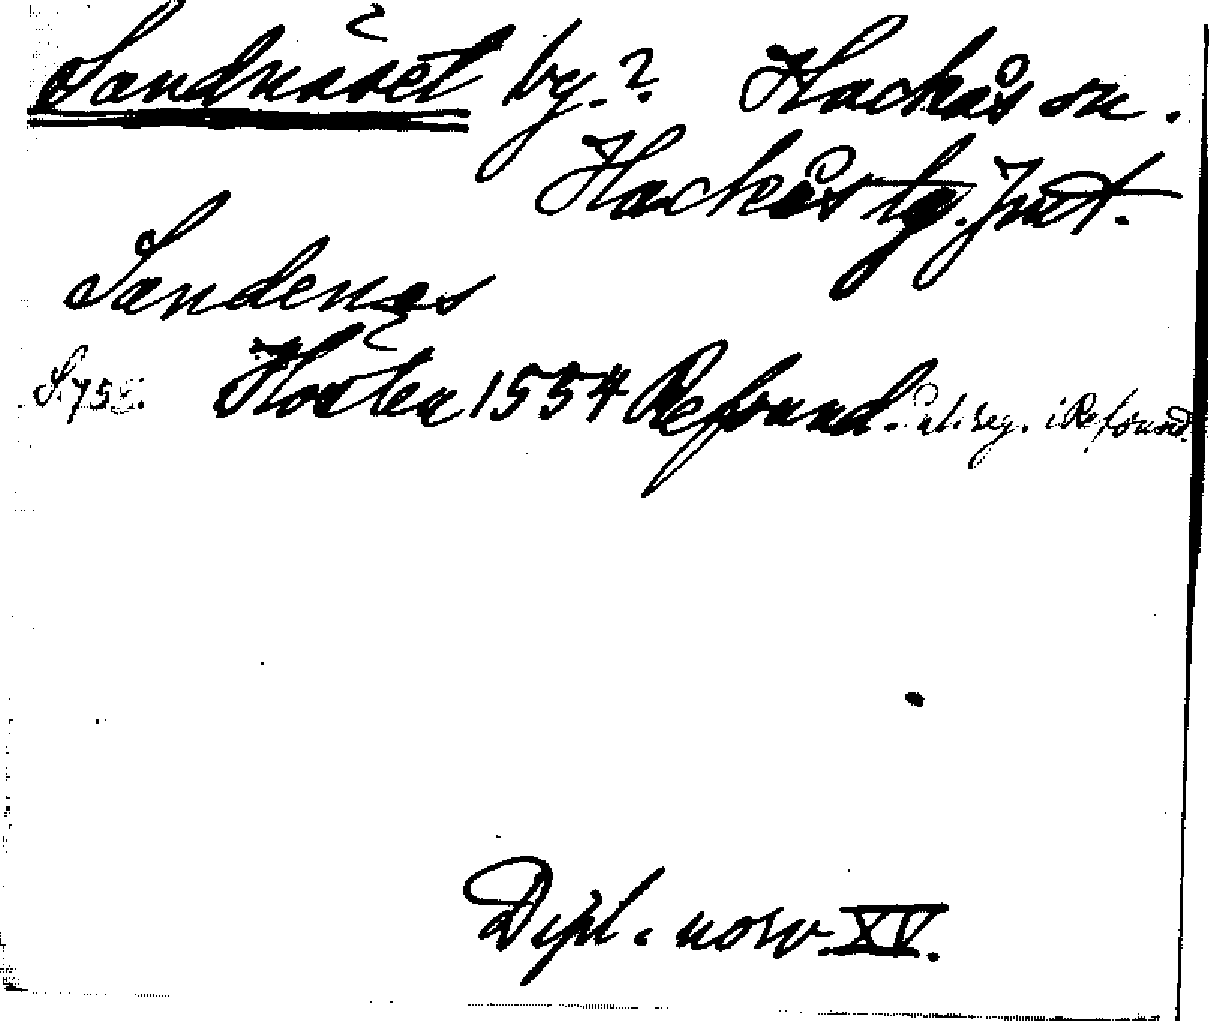 Sandnäset by.? Hackås sn.
Hackås tg. Jmt.
Sandenęs
S. 75 Hoste 1554 Refsund. i Refsund.
Dipl. norv. XV.